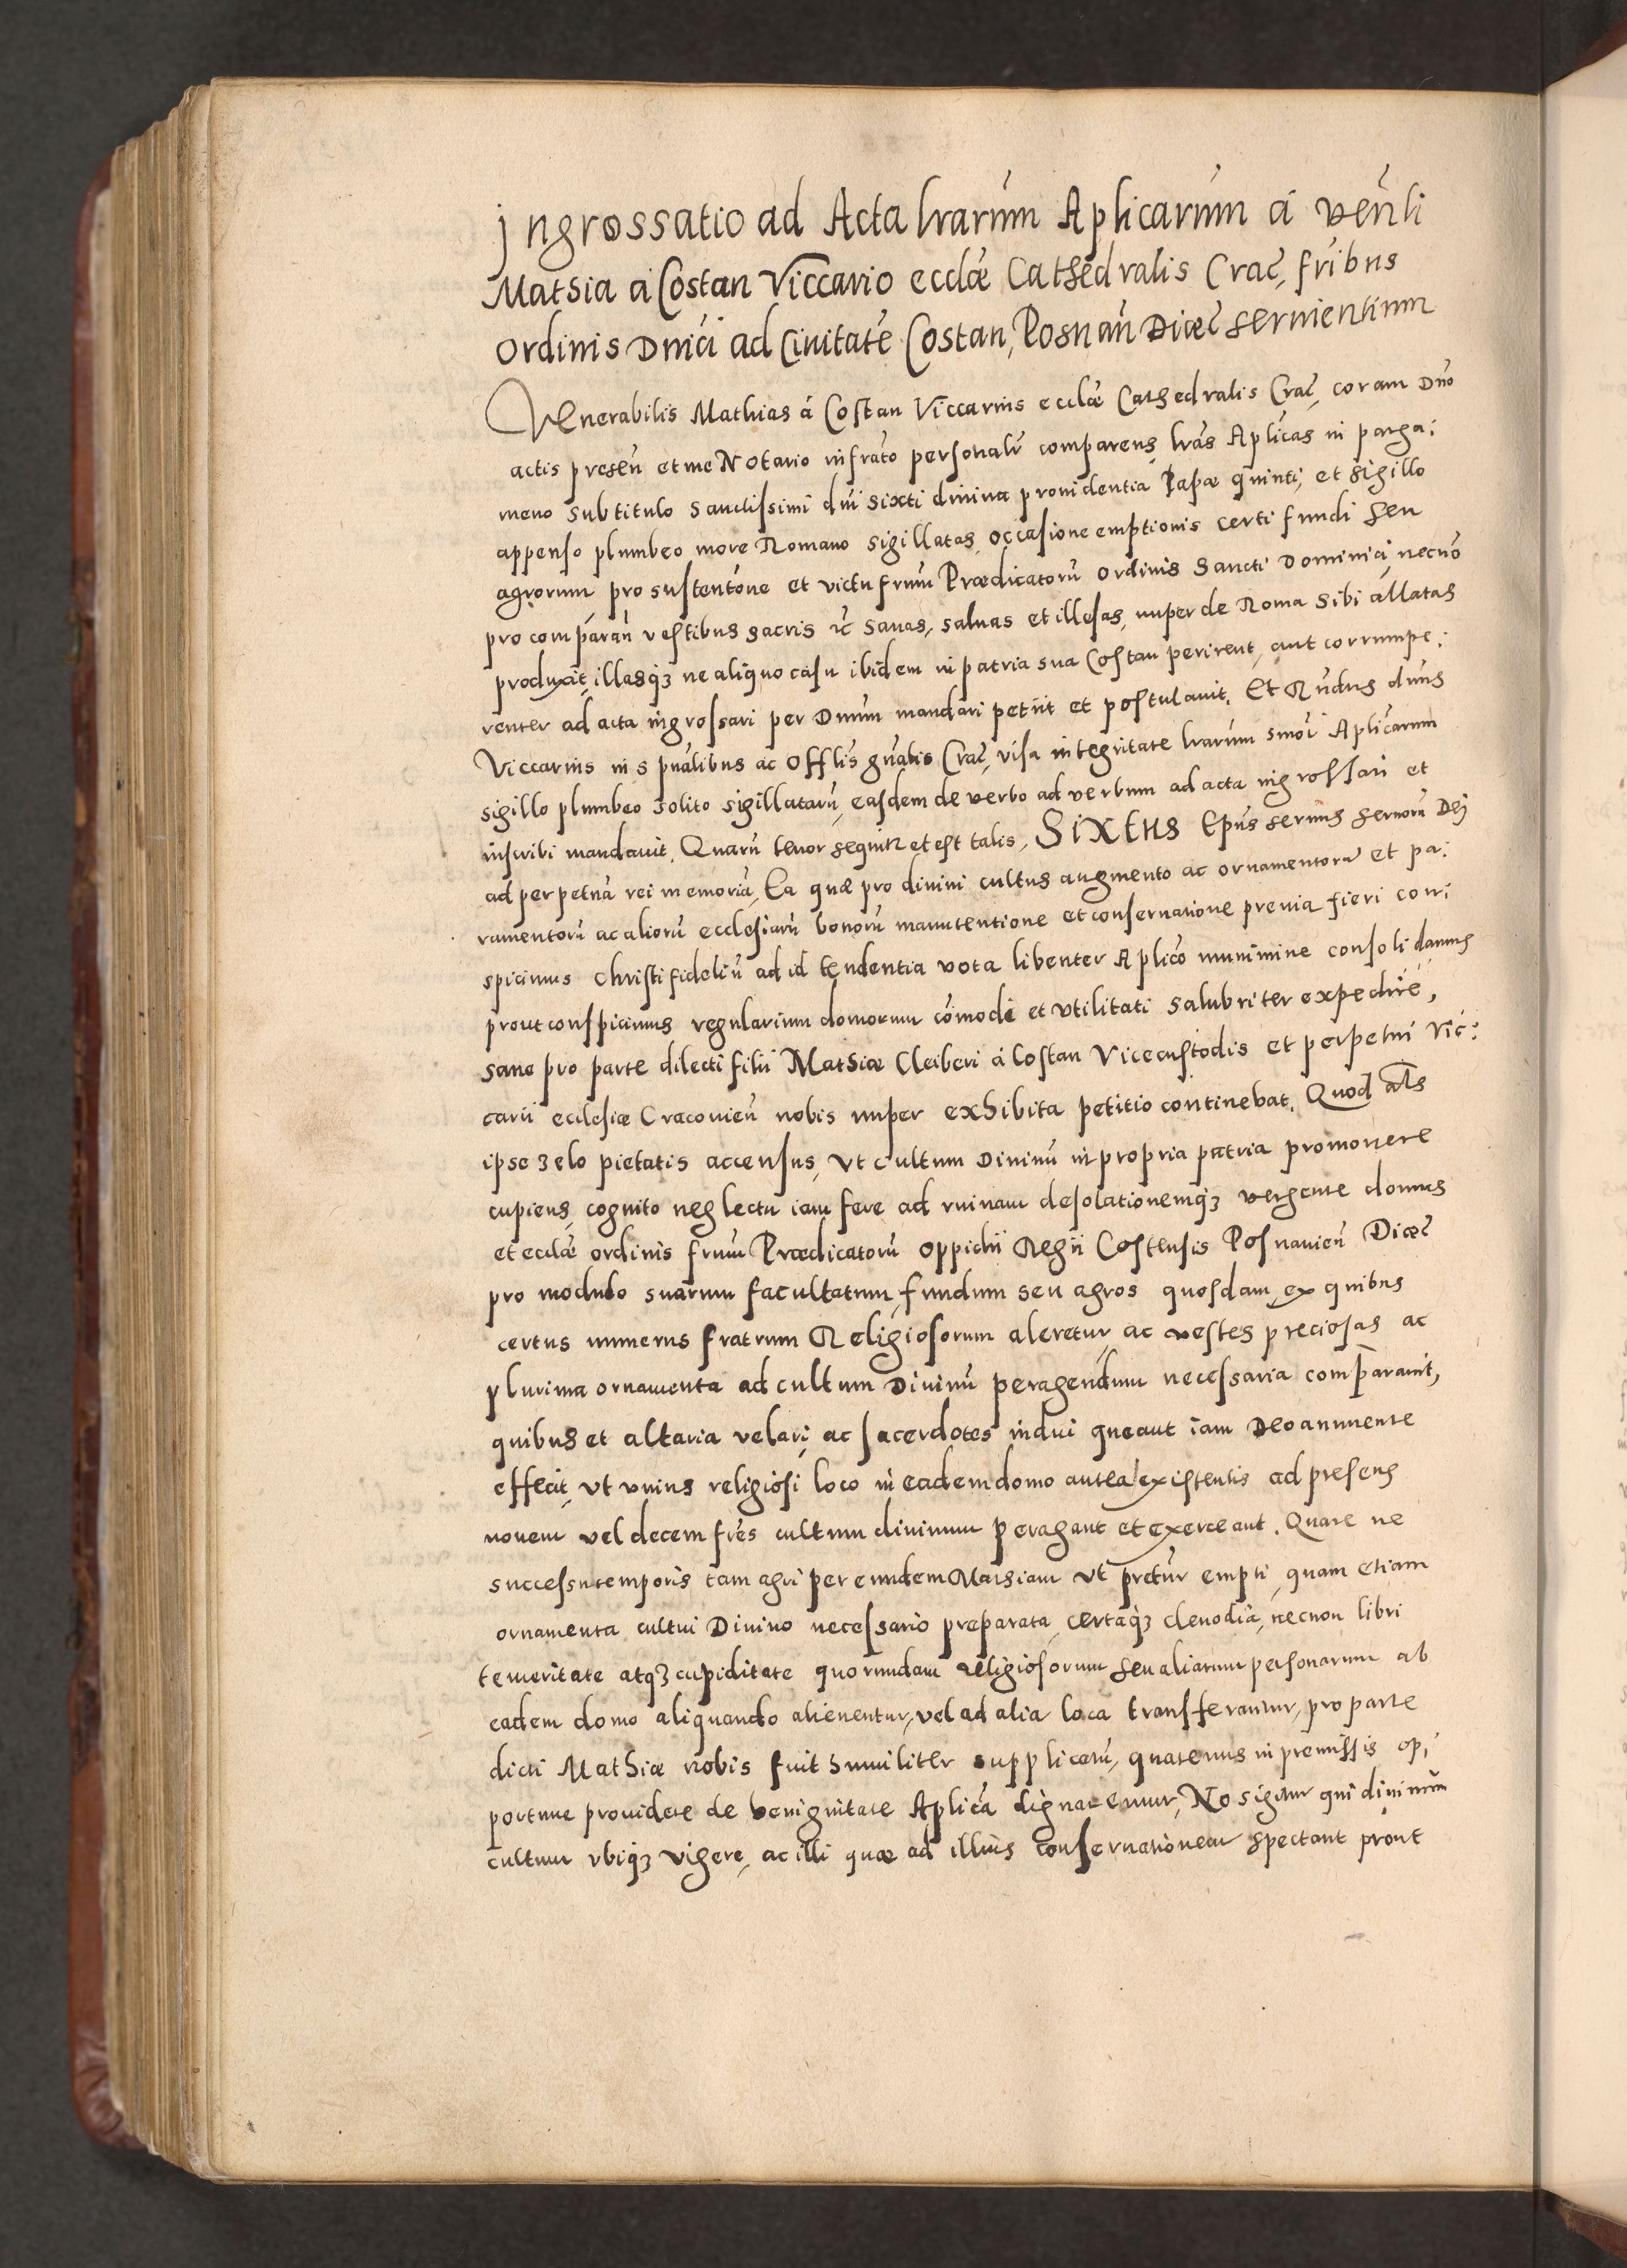 Jngrossatio ad Acta lrarum Aplicarum á venli
Mathia á Costan Viccario ecclæ Cathedralis Crac, fribus
Ordinis Dnici ad Civitate Costan, Posnan Diæc servientium
Venerabilis Mathias á Costan Viccarius ecclæ Cathedralis Crac, coram Dno
actis presen et me Notario infrato personalr comparens, lras Aplicas in perga:
meno sub titulo Sanctissimi dni Sixti divina providentia Papæ quinti, et sigillo
appenso plumbeo more Romano sigillatas, occasione emptionis certi fundi seu
agrorum, pro sustentone et victu frum Prædicatorū ordinis Sancti Dominici, necno
pro comparan vestibus sacris ec sanas, salvas et illesas, nuper de Roma sibi allatas
produxit, illasqz ne aliquo casu ibidem in patria sua Costan perirent, aut corrumpe:
rentur ad acta ingrossari per Dnum mandari petiit et postulavit. Et Rndus dnus
Viccarius in spualibus ac Offlis gnalis Crac, visa integritate lrarum smoi Aplicarum
sigillo plumbeo solito sigillatarū, easdem de verbo ad verbum ad acta ingrossari et
inscribi mandavit. Quarū tenor sequitr et est talis, SIXTUS Epus servus servorū Dej
ad perpetuā rei memoriā, Ea quæ pro divini cultus augmento ac ornamentorū et pa:
ramentorū ac aliorū ecclesiarū bonorū manutentione et conservatione previa fieri con:
spicimus Christifideliū ad id tendentia vota libenter Aplico munimine consolidamus
prout conspicimus regularium domorum cōmodi et utilitati salubriter expedire,
sane pro parte dilecti filii Mathiæ Cleiberi á Costan Vicecustodis et perpetui Vic:
carii ecclesiæ Cracovien nobis nuper exhibita petitio continebat. Quod als
ipse zelo pietatis accensus, vt cultum Divinū in propria patria promovere
cupiens, cognito neglectu iam fere ad ruinam desolationemqz vergente domus
et ecclæ ordinis frum Prædicatorū oppidii Regii Costensis Posnanien Diæc
pro modulo suarum facultatum, fundum seu agros quosdam, ex quibus
certus numerus fratrum Religiosorum aleretur, ac vestes preciosas ac
plurima ornamenta ad cultum Divinū peragendum necessaria comparavit,
quibus et altaria velari, ac sacerdotes indui queant iam Deo annuente
effecit, vt vnius religiosi loco in eadem domo antea existentis ad presens
novem vel decem fres cultum divinum peragant et exerceant. Quare ne
successu temporis tam agri per eundem Mathiam vt pretur empti, quam etiam
ornamenta cultui Divino necessario preparata, certaqz clenodia, necnon libri
temeritate atqz cupiditate quorundam religiosorum seu aliarum personarum ab
eadem domo aliquando alienentur, vel ad alia loca transferantur, pro parte
dicti Mathiæ nobis fuit humiliter supplicatū, quatenus in premissis op:
portune providere de benignitate Aplica dignaremur, Nos igitur qui divinum
cultum vbiqz vigere, ac illi quæ ad illius conservationem spectant prout